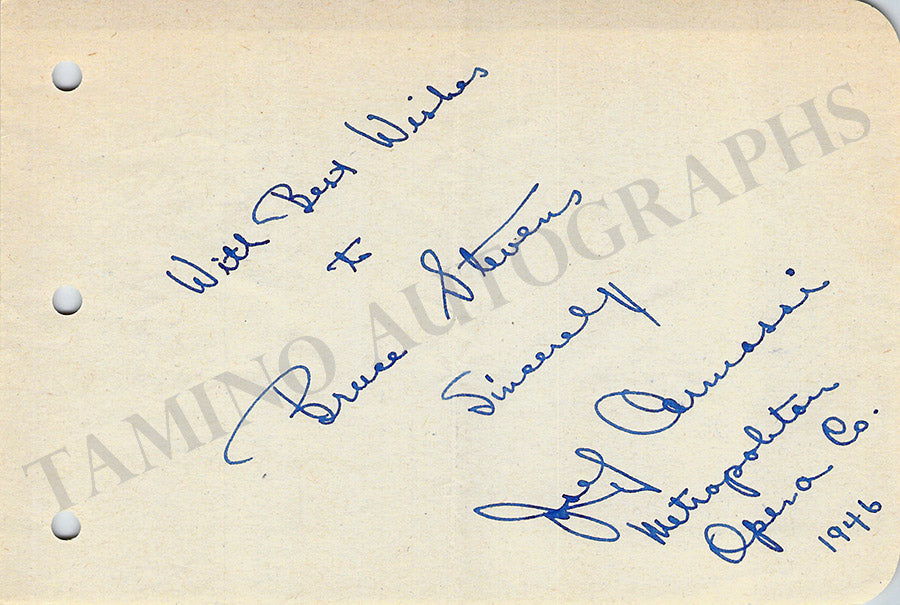 With Best Wishes
to
Bruce Stevens
Sincerely
Carmassi
Metropolitan
Opera Co.
1946
TAMINO AUTOGRAPHS